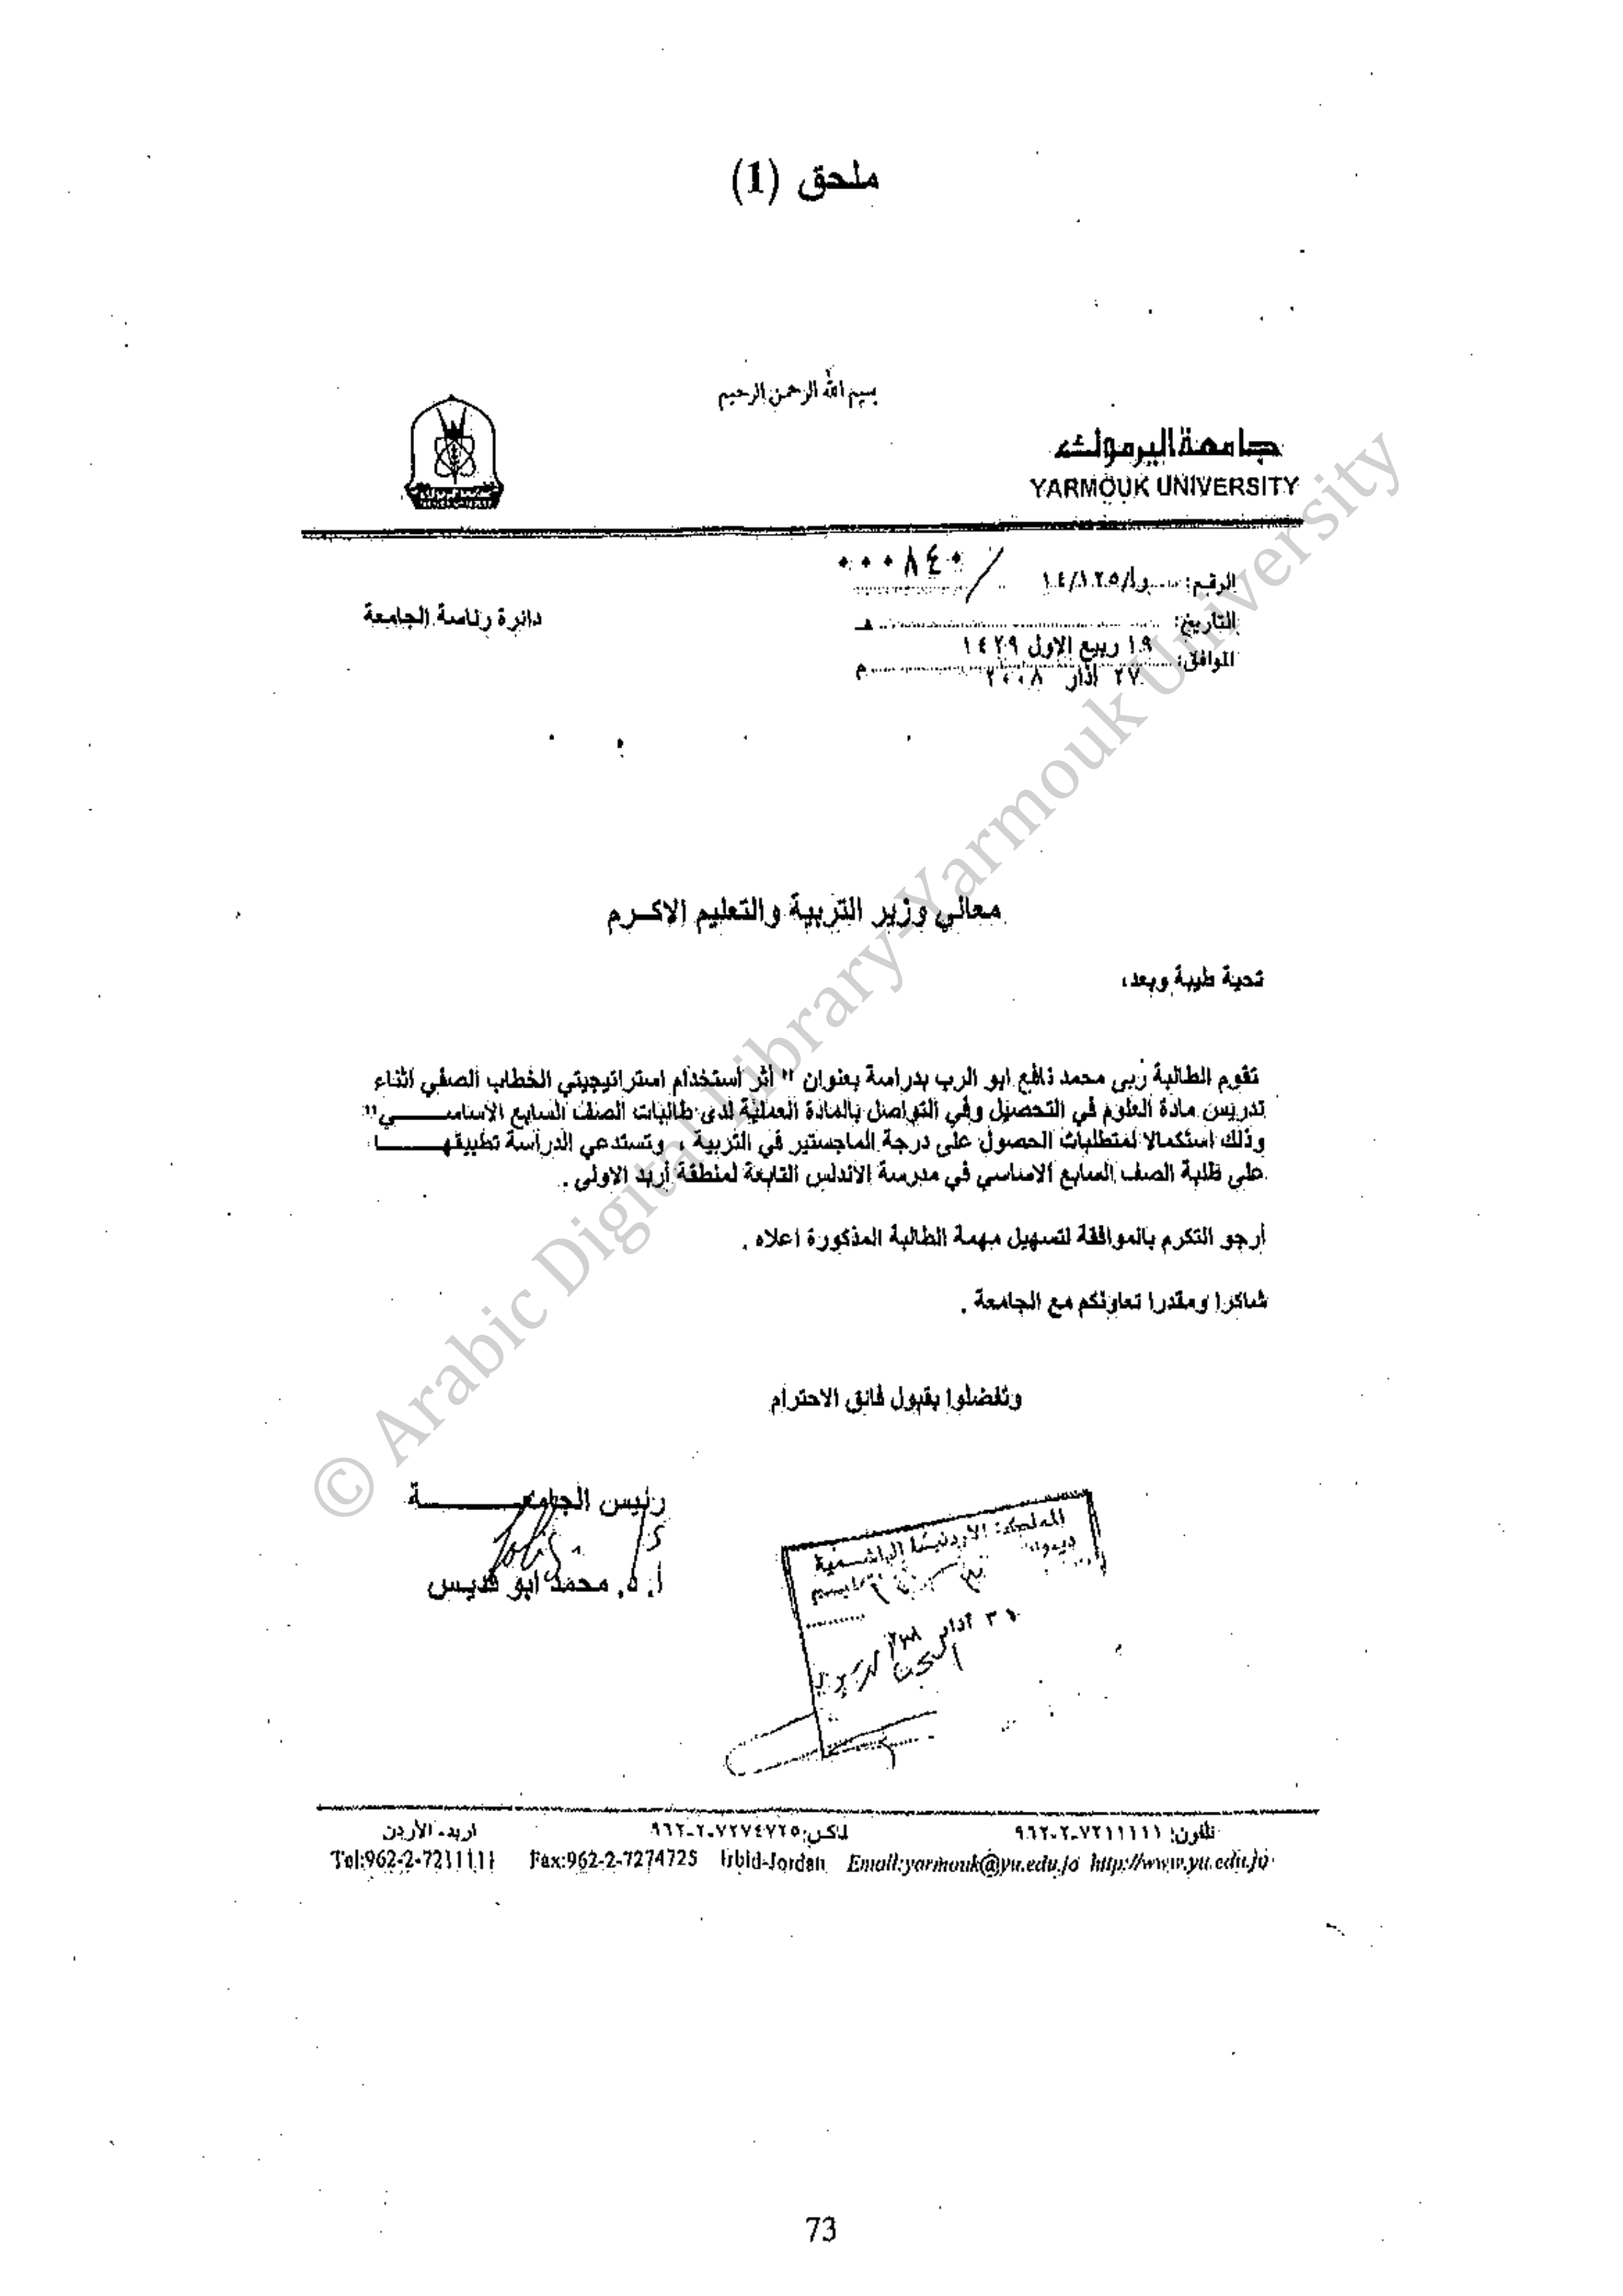 ملحق (1)
بسم الله الرحمن الرحيم
جامعة اليرموك
YARMOUK UNIVERSITY
الرقم: /١٤/١٠٢٥ ٠٠٠٨٤٠
التاريخ: هـ
١٩ ربيع الاول ١٤٢٩
الموافق: م
٢٧ آذار ٢٠٠٨
دائرة رئاسة الجامعة
معالي وزير التربية والتعليم الاكرم
تحية طيبة وبعد،
تقوم الطالبة ربى محمد نافع ابو الرب بدراسة بعنوان " أثر استخدام استراتيجيتي الخطاب الصفي اثناء
تدريس مادة العلوم في التحصيل وفي التواصل بالمادة العملية لدى طالبات الصف السابع الأساسي"
وذلك استكمالا لمتطلبات الحصول على درجة الماجستير في التربية ، وتستدعي الدراسة تطبيقها
على طلبة الصف السابع الاساسي في مدرسة الأندلس التابعة لمنطقة أربد الاولى .
أرجو التكرم بالموافقة لتسهيل مهمة الطالبة المذكورة اعلاه .
شاكرا ومقدرا تعاونكم مع الجامعة .
وتفضلوا بقبول فائق الاحترام
رئيس الجامعة
أ. د. محمد ابو قديس
المملكة الأردنية الهاشمية
آذار
تلفون: ٧٢١١١١١-٢-٩٦٢ فاكس: ٧٢٧٤٧٢٥-٢-٩٦٢ اربد- الأردن
Tel:962-2-7211111 Fax:962-2-7274725 Irbid-Jordan Email:yarmouk@yu.edu.jo http://www.yu.edu.jo
© Arabic Digital Library-Yarmouk University
73